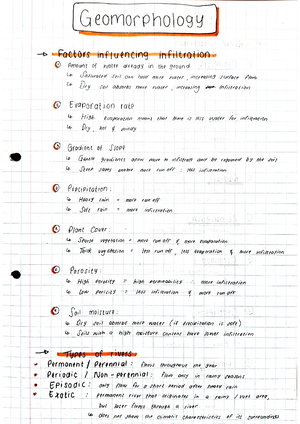 Geomorphology
→ Factors influencing infiltration
① Amount of water already in the ground
↳ Saturated soil can hold more water, increasing surface flow
↳ Dry soil absorbs more water, increasing infiltration
② Evaporation rate
↳ High evaporation means that there is less water for infiltration
↳ Dry, hot & windy
③ Gradient of slope
↳ Gentle gradients allow more to infiltrate and be absorbed by the soil
↳ Steep slopes water more run off : less infiltration
④ Precipitation:
↳ Heavy rain = more run off
↳ Soft rain = more infiltration
⑤ Plant Cover:
↳ Sparse vegetation = more run off & more evaporation
↳ Thick vegetation = less run off, less evaporation & more infiltration
⑥ Porosity:
↳ High porosity = high permeability : more infiltration
↳ Low porosity = less infiltration & more run off
⑦ Soil moisture:
↳ Dry soil absorbs more water (if precipitation is soft)
↳ Soils with a high moisture content have lower infiltration
→ Types of rivers:
Permanent / Perennial: flows throughout the year
Periodic / Non-perennial: flow only in rainy seasons
Episodic: only flow for a short period after heavy rain
Exotic: permanent river that originates in a rainy / wet area,
but later flows through a
↳ does not show the climatic characteristics of its surroundings